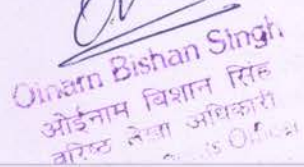 Oinam Bishan Singh
ओईनाम बिशान सिंह
वरिष्ठ लेखा अधिकारी